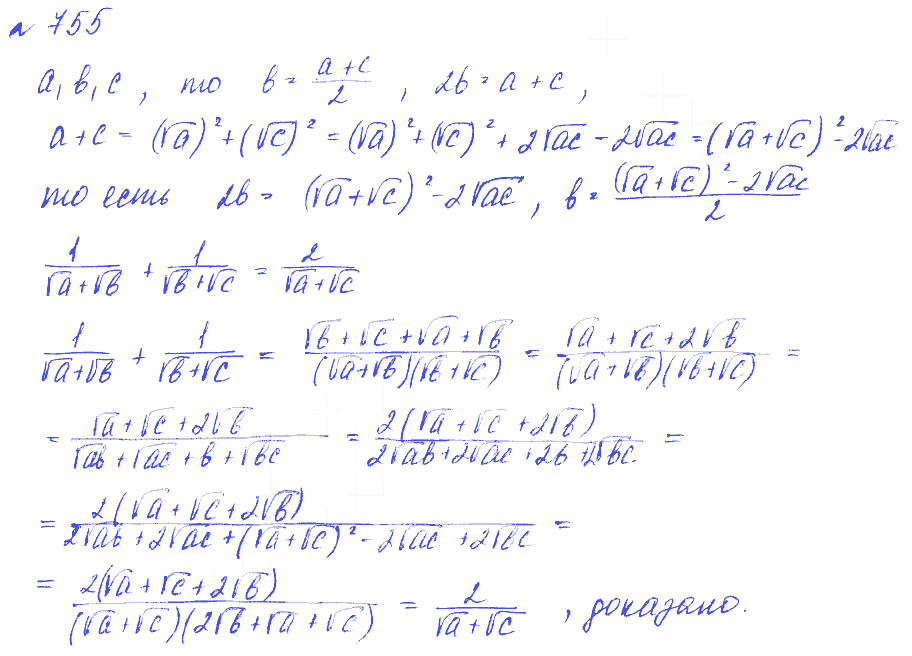 № 755
a, b, c, то b = (a+c)/2, 2b = a + c,
a + c = (√a)² + (√c)² = (√a)² + (√c)² + 2√ac − 2√ac = (√a + √c)² − 2√ac
то есть 2b = (√a + √c)² − 2√ac, b = ((√a + √c)² − 2√ac)/2
1/(√a + √b) + 1/(√b + √c) = 2/(√a + √c)
1/(√a + √b) + 1/(√b + √c) = (√b + √c + √a + √b)/((√a + √b)(√b + √c)) = (√a + √c + 2√b)/((√a + √b)(√b + √c)) =
= (√a + √c + 2√b)/(√ab + √ac + b + √bc) = 2(√a + √c + 2√b)/(2√ab + 2√ac + 2b + 2√bc) =
= 2(√a + √c + 2√b)/(2√ab + 2√ac + (√a + √c)² − 2√ac + 2√bc) =
= 2(√a + √c + 2√b)/((√a + √c)(2√b + √a + √c)) = 2/(√a + √c), доказано.